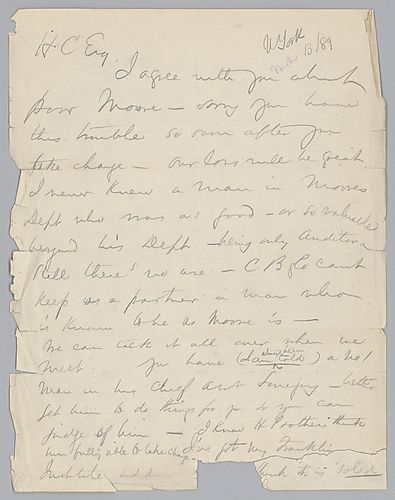 N York
H C Esq Mch 13/89
I agree with you about
poor Moore — sorry you have
this trouble so soon after you
take charge — our loss will be great
I never knew a man in Moores
Dept who was as good — or so valuable
beyond his Dept — being only Auditor
Still there's no use — C B & Co cant
keep as a partner a man who
is known to be as Moore is —
We can talk it all over when we
meet — you have (I am told) a No 1
man in his chief asst — better
get him to do things for you so you can
judge of him — I know H Smothers thinks
him fully able to take charge I've got my Franklin
Institute this is "solid